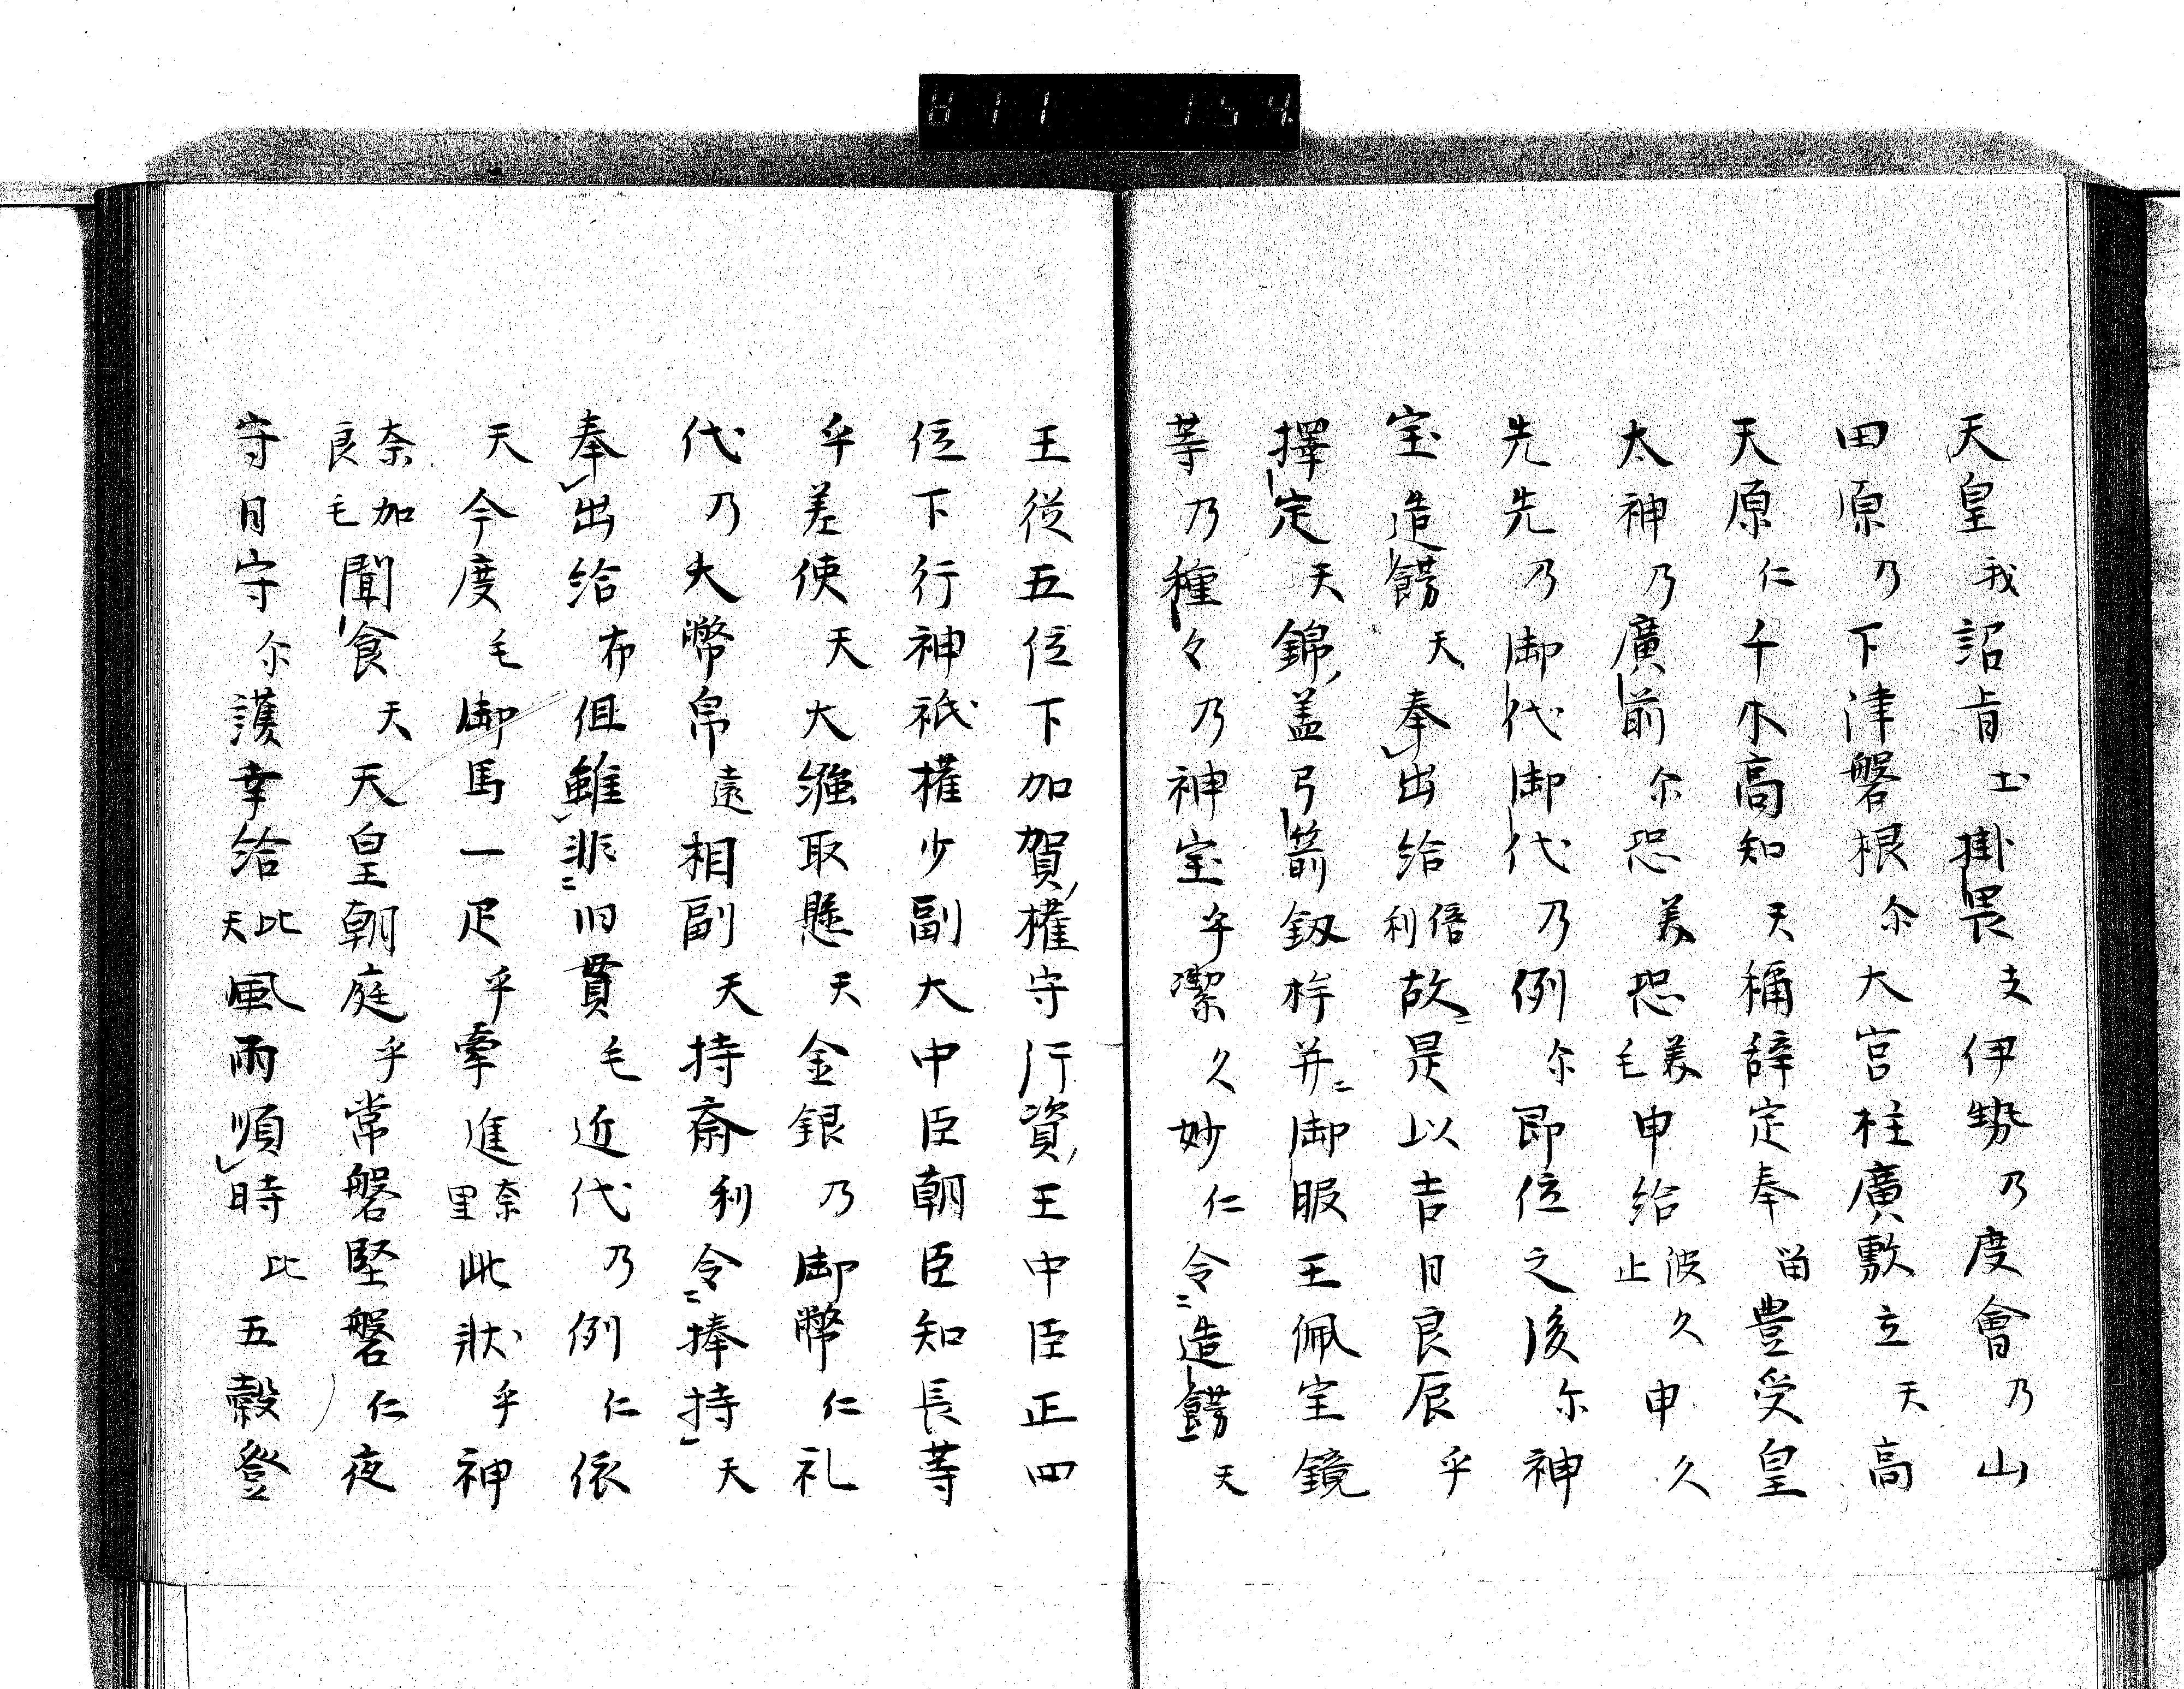 天皇我詔旨士掛畏支伊勢乃度會乃山
田原乃下津磐根尓大宮柱廣敷立天高
天原仁千木高知天稱辞定奉留豊受皇
太神乃廣前尓恐美恐美毛申給波久申久
先先乃御代御代乃例尓即位之後尓神
宝造餝天奉出給倍利故是以吉日良辰乎
擇定天錦盖弓箭釼桙并御服玉佩宝鏡
等乃種々乃神宝乎潔久妙仁令造餝天
王從五位下加賀權守行資王中臣正四
位下行神祇權少副大中臣朝臣知長等
乎差使天大繦取懸天金銀乃御幣仁礼
代乃大幣帛遠相副天持斎利令捧持天
奉出給布但雖非旧貫毛近代乃例仁依
天今度毛御馬一疋乎牽進奈里此狀乎神
奈加良毛聞食天天皇朝庭乎常磐堅磐仁夜
守日守尓護幸給比天風雨順時比五穀登